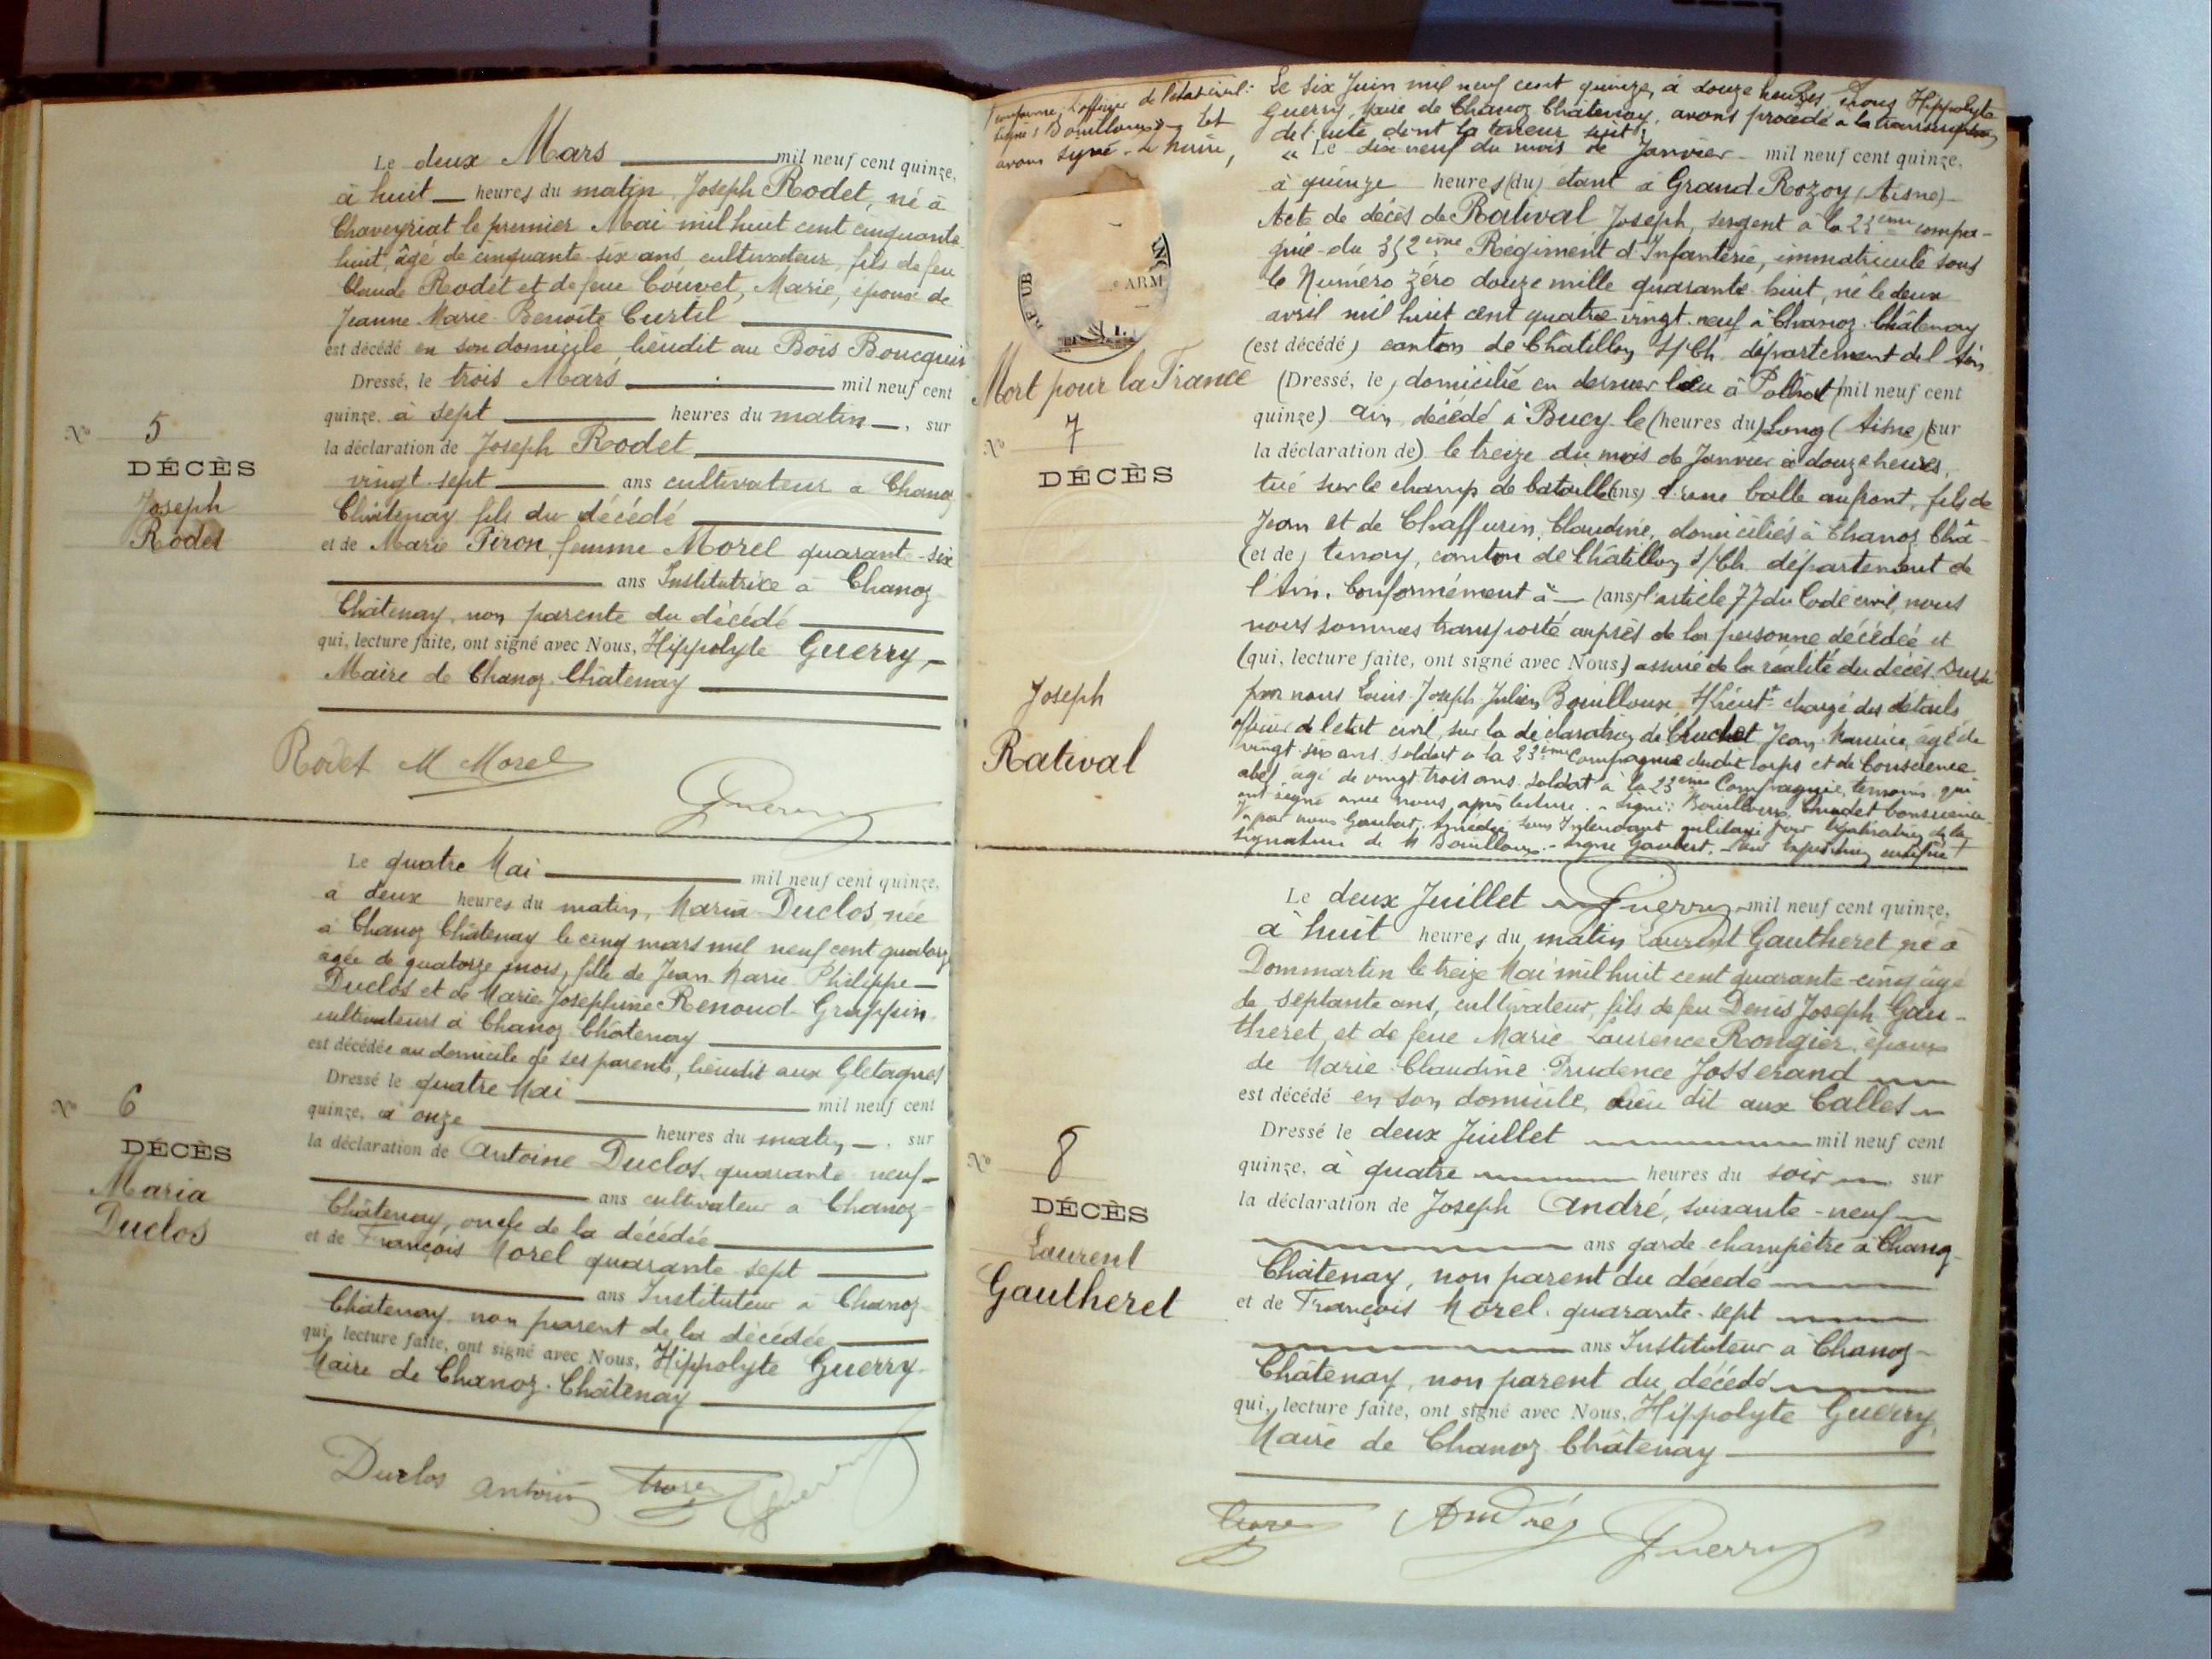 Le deux Mars mil neuf cent quinze,
à huit heures du matin, Joseph Rodet, né à
Chaveyriat le premier Mai mil huit cent cinquante
huit, âgé de cinquante-six ans cultivateur, fils de feu
Claude Rodet et de feue Couvet, Marie, époux de
Jeanne-Marie-Benoîte Curtil
est décédé en son domicile, lieudit au Bois Boucquin
Dressé, le trois Mars mil neuf cent
quinze, à sept heures du matin, sur
la déclaration de Joseph Rodet
vingt-sept ans cultivateur à Chanoz
Châtenay fils du décédé
et de Marie Piron, femme Morel quarante-six
ans Institutrice à Chanoz
Châtenay, non parente du décédé
qui, lecture faite, ont signé avec Nous, Hippolyte Guerry,
Maire de Chanoz-Châtenay
N° 5
DÉCÈS
Joseph
Rodet
Rodet M Morel
Guerry
Le quatre Mai mil neuf cent quinze,
à deux heures du matin, Maria Duclos, née
à Chanoz Châtenay le cinq mars mil neuf cent quatorze
âgée de quatorze mois, fille de Jean Marie Philippe
Duclos et de Marie Joséphine Renoud-Grappin
cultivateurs à Chanoz Châtenay
est décédée au domicile de ses parents, lieudit aux Gletagnes
Dressé le quatre Mai mil neuf cent
quinze, à onze heures du matin, sur
la déclaration de Antoine Duclos, quarante-neuf
ans cultivateur à Chanoz-
Châtenay, oncle de la décédée
et de François Morel quarante sept
ans Instituteur à Chanoz-
Châtenay, non parent de la décédée
qui, lecture faite, ont signé avec Nous, Hippolyte Guerry
Maire de Chanoz-Châtenay
N° 6
DÉCÈS
Maria
Duclos
Duclos antoine Morel Guerry
conforme, L'officier de l'état civil:
signé: Bouilloux" et
avons signé le maire,
Mort pour la France
N° 7
DÉCÈS
Joseph
Ratival
Le six Juin mil neuf cent quinze, à douze heures, nous Hippolyte
Guerry, Maire de Chanoz-Châtenay, avons procédé à la transcription
de l'acte dont la teneur suit:
"Le dix neuf du mois de Janvier mil neuf cent quinze,
à quinze heures (du) étant à Grand Rozoy (Aisne)
Acte de décès de Rativał Joseph, sergent à la 23ème compa-
gnie du 352ème Régiment d'Infanterie, immatriculé sous
le Numéro zéro douze mille quarante-huit, né le deux
avril mil huit cent quatre-vingt-neuf à Chanoz-Châtenay
(est décédé) canton de Châtillon s/Ch. département de l'Ain
(Dressé, le) domicilié en dernier lieu à Polliat (mil neuf cent
quinze) Ain, décédé à Bucy-le (heures du) Long (Aisne) (sur
la déclaration de) le treize du mois de Janvier à douze heures,
tué sur le champ de bataille (ans) d'une balle au front, fils de
Jean et de Chaffurin, Claudine, domiciliés à Chanoz Châ-
(et de) tenay, canton de Châtillon s/Ch. département de
l'Ain. Conformément à (ans) l'article 77 du Code civil, nous
nous sommes transporté auprès de la personne décédée et
(qui, lecture faite, ont signé avec Nous,) assuré de la réalité du décès. Dressé
par nous Louis-Joseph-Julien Bouilloux, s/lieut chargé des détails
officier de l'état civil, sur la déclaration de Cruchet Jean Maurice, âgé de
vingt six ans, soldat à la 23ème Compagnie dudit corps et de Conscience
abel âgé de vingt trois ans, soldat à la 23ème Compagnie, témoins qui
ont signé avec nous, après lecture. Signé: Bouilloux, Cruchet Conscience
Vu par nous Gaubert, sous Intendant militaire pour légalisation de la
signature de M Bouilloux. - Signé Gaubert. Pour expédition certifiée
Guerry
Le deux Juillet mil neuf cent quinze,
à huit heures du matin Laurent Gautheret, né à
Dommartin le treize Mai mil huit cent quarante-cinq âgé
de septante ans, cultivateur, fils de feu Denis Joseph Gau-
theret, et de feue Marie Laurence Rongier, époux
de Marie Claudine Prudence Josserand
est décédé en son domicile, lieu dit aux Calles
Dressé le deux Juillet mil neuf cent
quinze, à quatre heures du soir, sur
la déclaration de Joseph André, soixante-neuf
ans garde-champêtre à Chanoz-
Châtenay, non parent du décédé
et de François Morel, quarante-sept
ans Instituteur à Chanoz-
Châtenay, non parent du décédé
qui, lecture faite, ont signé avec Nous, Hippolyte Guerry,
Maire de Chanoz-Châtenay
N° 8
DÉCÈS
Laurent
Gautheret
Morel André Guerry